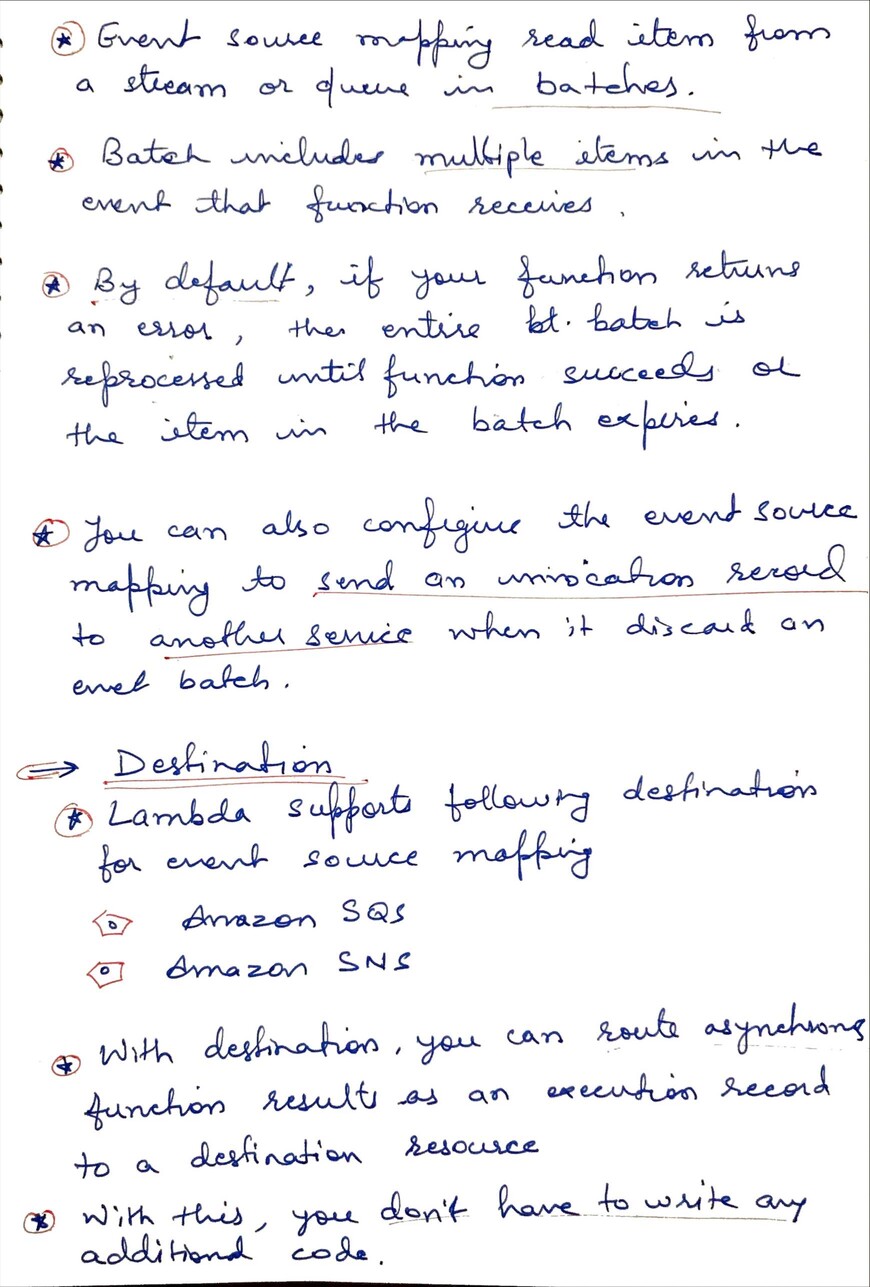 Event source mapping read item from
a stream or queue in batches.
Batch includes multiple items in the
event that function receives.
By default, if your function returns
an error, the entire bt. batch is
reprocessed until function succeeds or
the item in the batch expires.
You can also configure the event source
mapping to send an invocation record
to another service when it discard an
evnet batch.
⇒ Destination
Lambda supports following destination
for event source mapping
Amazon SQS
Amazon SNS
With destination, you can route asynchrons
function results as an execution record
to a destination resource
With this, you don't have to write any
additional code.